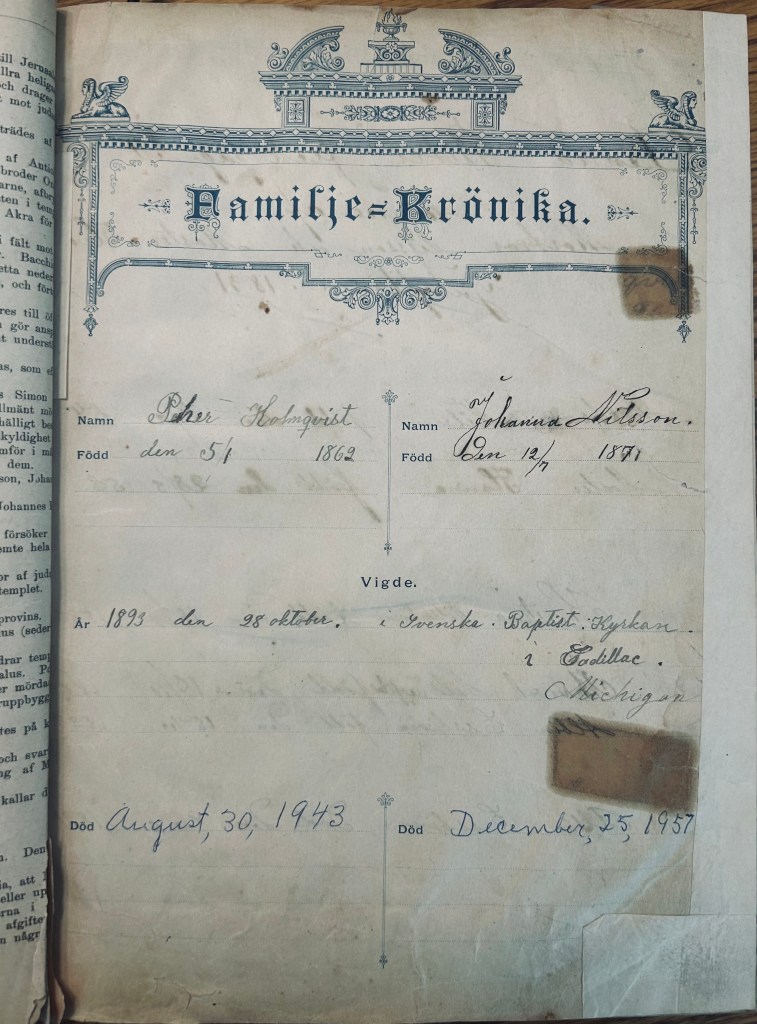 till Jerusa
llra helig
och drager
t mot jud
trädes af
af Anti
broder On
arne, afbr
ten i tem
Akra för
i fält mot
r. Bacchi
etta neder
, och förs
res till öf
n gör ansp
t underst
as, som ef
s Simon
llmänt mö
hälligt be
kyldighet
mför i m
dem.
sson, Joha
Johannes
försöker
emte hela
or af jud
templet.
provins.
nus (seder
drar temp
alus. Po
er mörda
ruppbygg
tes på k
och svar
ng af M
kallar d
n. Den
ia, att
eller up
erna i
afgifte
n någr
Familje=Krönika.
Namn Peher Holmqvist
Född den 5/1 1862
Namn Johanna Nilsson.
Född Den 12/7 1871
Vigde.
År 1893 den 28 oktober. i Svenska. Baptist. Kyrkan.
i Cadillac.
Michigan
Död August, 30, 1943
Död December, 25, 1957